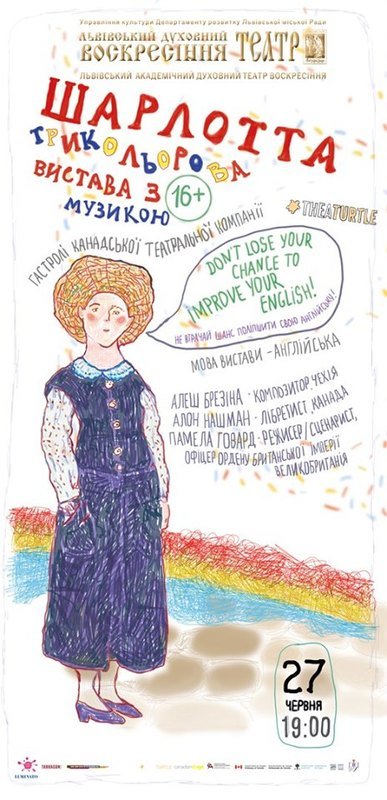 Управління культури Департаменту розвитку Львівської міської Ради
ЛЬВІВСЬКИЙ ДУХОВНИЙ
ВОСКРЕСІННЯ ТЕАТР
ЛЬВІВСЬКИЙ АКАДЕМІЧНИЙ ДУХОВНИЙ ТЕАТР ВОСКРЕСІННЯ
ШАРЛОТТА
ТРИКОЛЬОРОВА
ВИСТАВА З 16+
МУЗИКОЮ
ГАСТРОЛІ КАНАДСЬКОЇ ТЕАТРАЛЬНОЇ КОМПАНІЇ
THEATURTLE
DON'T LOSE YOUR
CHANCE TO
IMPROVE YOUR
ENGLISH!
НЕ ВТРАЧАЙ ШАНС ПОЛІПШИТИ СВОЮ АНГЛІЙСЬКУ!
МОВА ВИСТАВИ - АНГЛІЙСЬКА
АЛЕШ БРЕЗІНА · КОМПОЗИТОР ЧЕХІЯ
АЛОН НАШМАН · ЛІБРЕТИСТ, КАНАДА
ПАМЕЛА ГОВАРД · РЕЖИСЕР / СЦЕНАРИСТ,
ОФІЦЕР ОРДЕНУ БРИТАНСЬКОЇ ІМПЕРІЇ
ВЕЛИКОБРИТАНІЯ
27
ЧЕРВНЯ
19:00
LUMINATO
TARRAGON